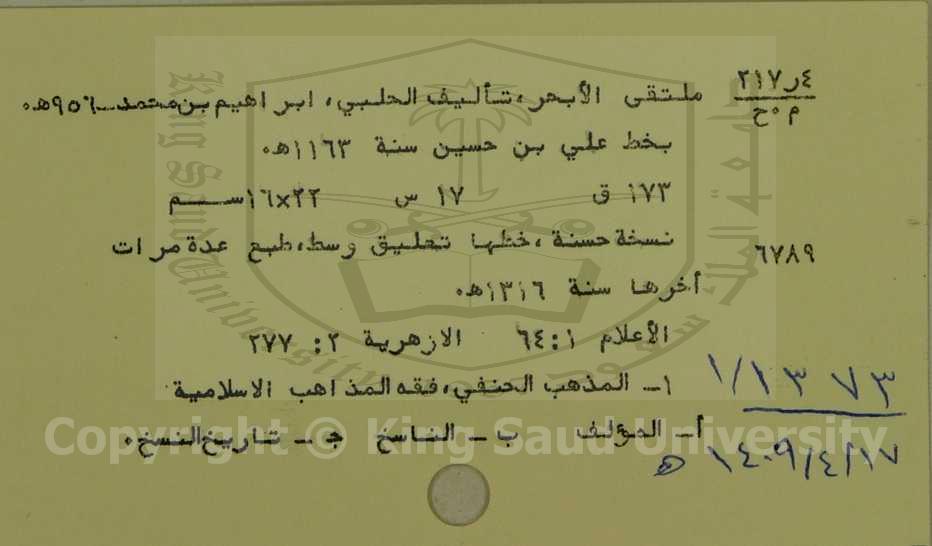 ٢١٧ر٤
م٠ح
ملتقى الأبحر، تأليف الحلبي، ابراهيم بن محمد ـ ٩٥٦هـ٠
بخط علي بن حسين سنة ١١٦٣هـ٠
١٧٣ ق ١٧ س ٢٢×١٦ ســـم
نسخة حسنة ، خطها تعليق وسط، طبع عدة مرات
٦٧٨٩
أخرها سنة ١٣١٦هـ٠
الأعلام ١ :٦٤ الازهرية ٢: ٢٧٧
١ـ المذهب الحنفي، فقه المذاهب الاسلامية
١/١٣٧٣
أـ المؤلف ب ـ الناسخ ج ـ تاريخ النسخ٠
١٤٠٩/٤/١٧ هـ
King Saud University
Copyright © King Saud University